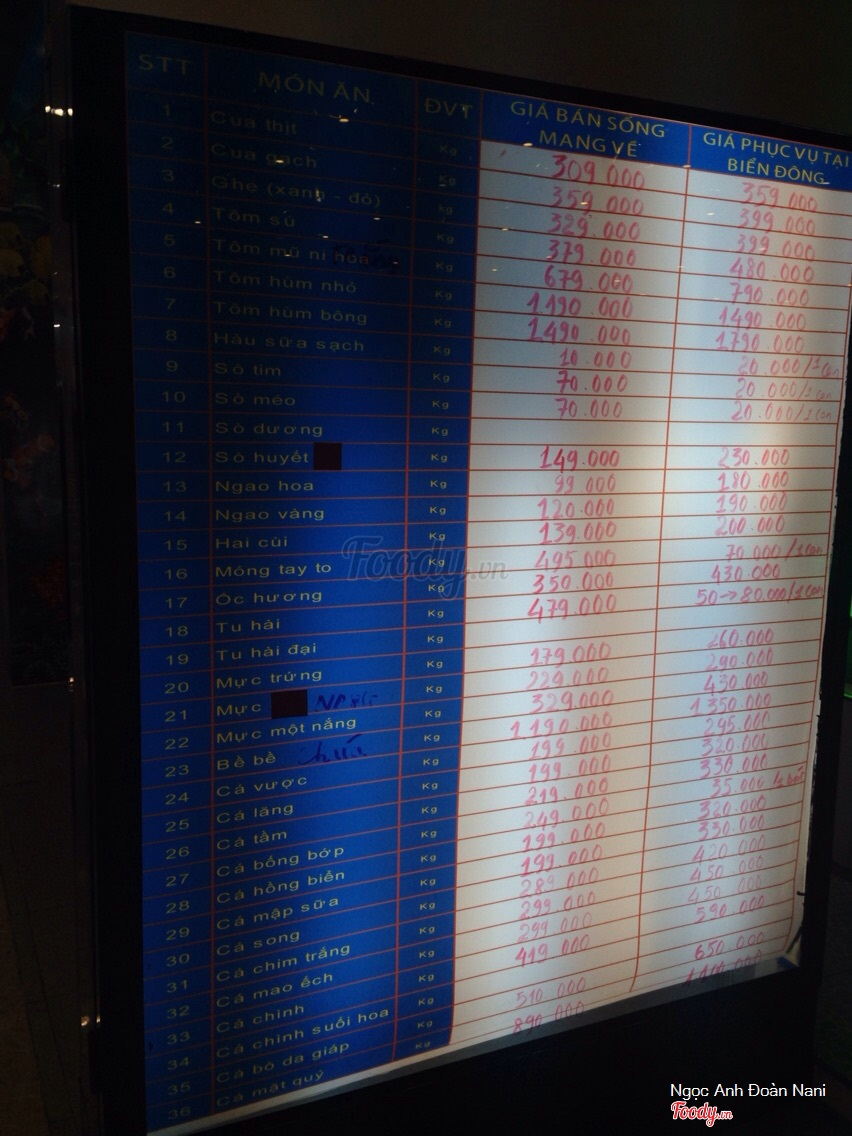 STT MÓN ĂN ĐVT GIÁ BÁN SỐNG MANG VỀ GIÁ PHỤC VỤ TẠI BIỂN ĐÔNG
1 Cua thịt Kg 309.000 359.000
2 Cua gạch Kg 359.000 399.000
3 Ghẹ (xanh - đỏ) kg 329.000 399.000
4 Tôm sú Kg 379.000 480.000
5 Tôm mũ ni hoa Kg 679.000 790.000
6 Tôm hùm nhỏ Kg 1.190.000 1490.000
7 Tôm hùm bông Kg 1490.000 1790.000
8 Hàu sữa sạch Kg 10.000 20.000/1 con
9 Sò tim Kg 70.000 20.000/1 con
10 Sò méo Kg 70.000 20.000/1 con
11 Sò dương Kg
12 Sò huyết Kg 149.000 230.000
13 Ngao hoa Kg 99.000 180.000
14 Ngao vàng Kg 120.000 190.000
15 Hai cùi Kg 139.000 200.000
16 Móng tay to Kg 495.000 70.000/1 con
17 Ốc hương Kg 350.000 430.000
18 Tu hài Kg 479.000 50→80.000/1 con
19 Tu hài đại Kg
20 Mực trứng Kg 179.000 260.000
21 Mực Kg 229.000 290.000
22 Mực một nắng Kg 329.000 430.000
23 Bề bề Kg 1.190.000 1.350.000
24 Cá vược Kg 199.000 295.000
25 Cá lăng Kg 199.000 320.000
26 Cá tầm Kg 219.000 330.000
27 Cá bống bớp Kg 249.000 35.000
28 Cá hồng biển Kg 199.000 320.000
29 Cá mập sữa Kg 199.000 330.000
30 Cá song Kg 289.000 420.000
31 Cá chim trắng Kg 299.000 450.000
32 Cá mao ếch Kg 299.000 450.000
33 Cá chình Kg 419.000 590.000
34 Cá chình suối hoa Kg
35 Cá bò da giáp Kg 510.000 650.000
36 Cá mặt quỷ Kg 890.000 1.100.000
Foody.vn
Ngọc Anh Đoàn Nani
Foody.vn